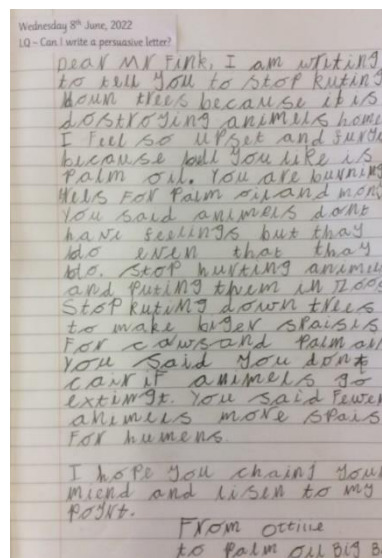 Wednesday 8th June, 2022
LQ - Can I write a persuasive letter?
Dear Mr Fink, I am writing
to tell you to stop kuting
down trees because it is
dostroying animels home
I feel so upset and
because bull you like is
Palm oil. You are burning
for Palm oil and mony
You said animels dont
have feelings but thay
do even that thay
do. Stop hurting animels
and puting them in zoos
Stop kuting down trees
to make biger spaises
For caws and Palm oil
You said you dont
cair if animels go
extingt. You said fewer
animels more spais
For humens.
I hope you chaing your
miend and lisen to my
poynt.
From Ottilie
to Palm oil Big B